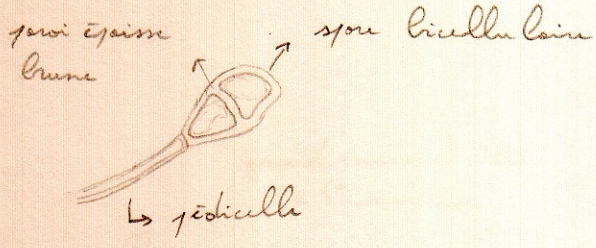 paroi épaisse
brune
spore bicellulaire
pédicelle